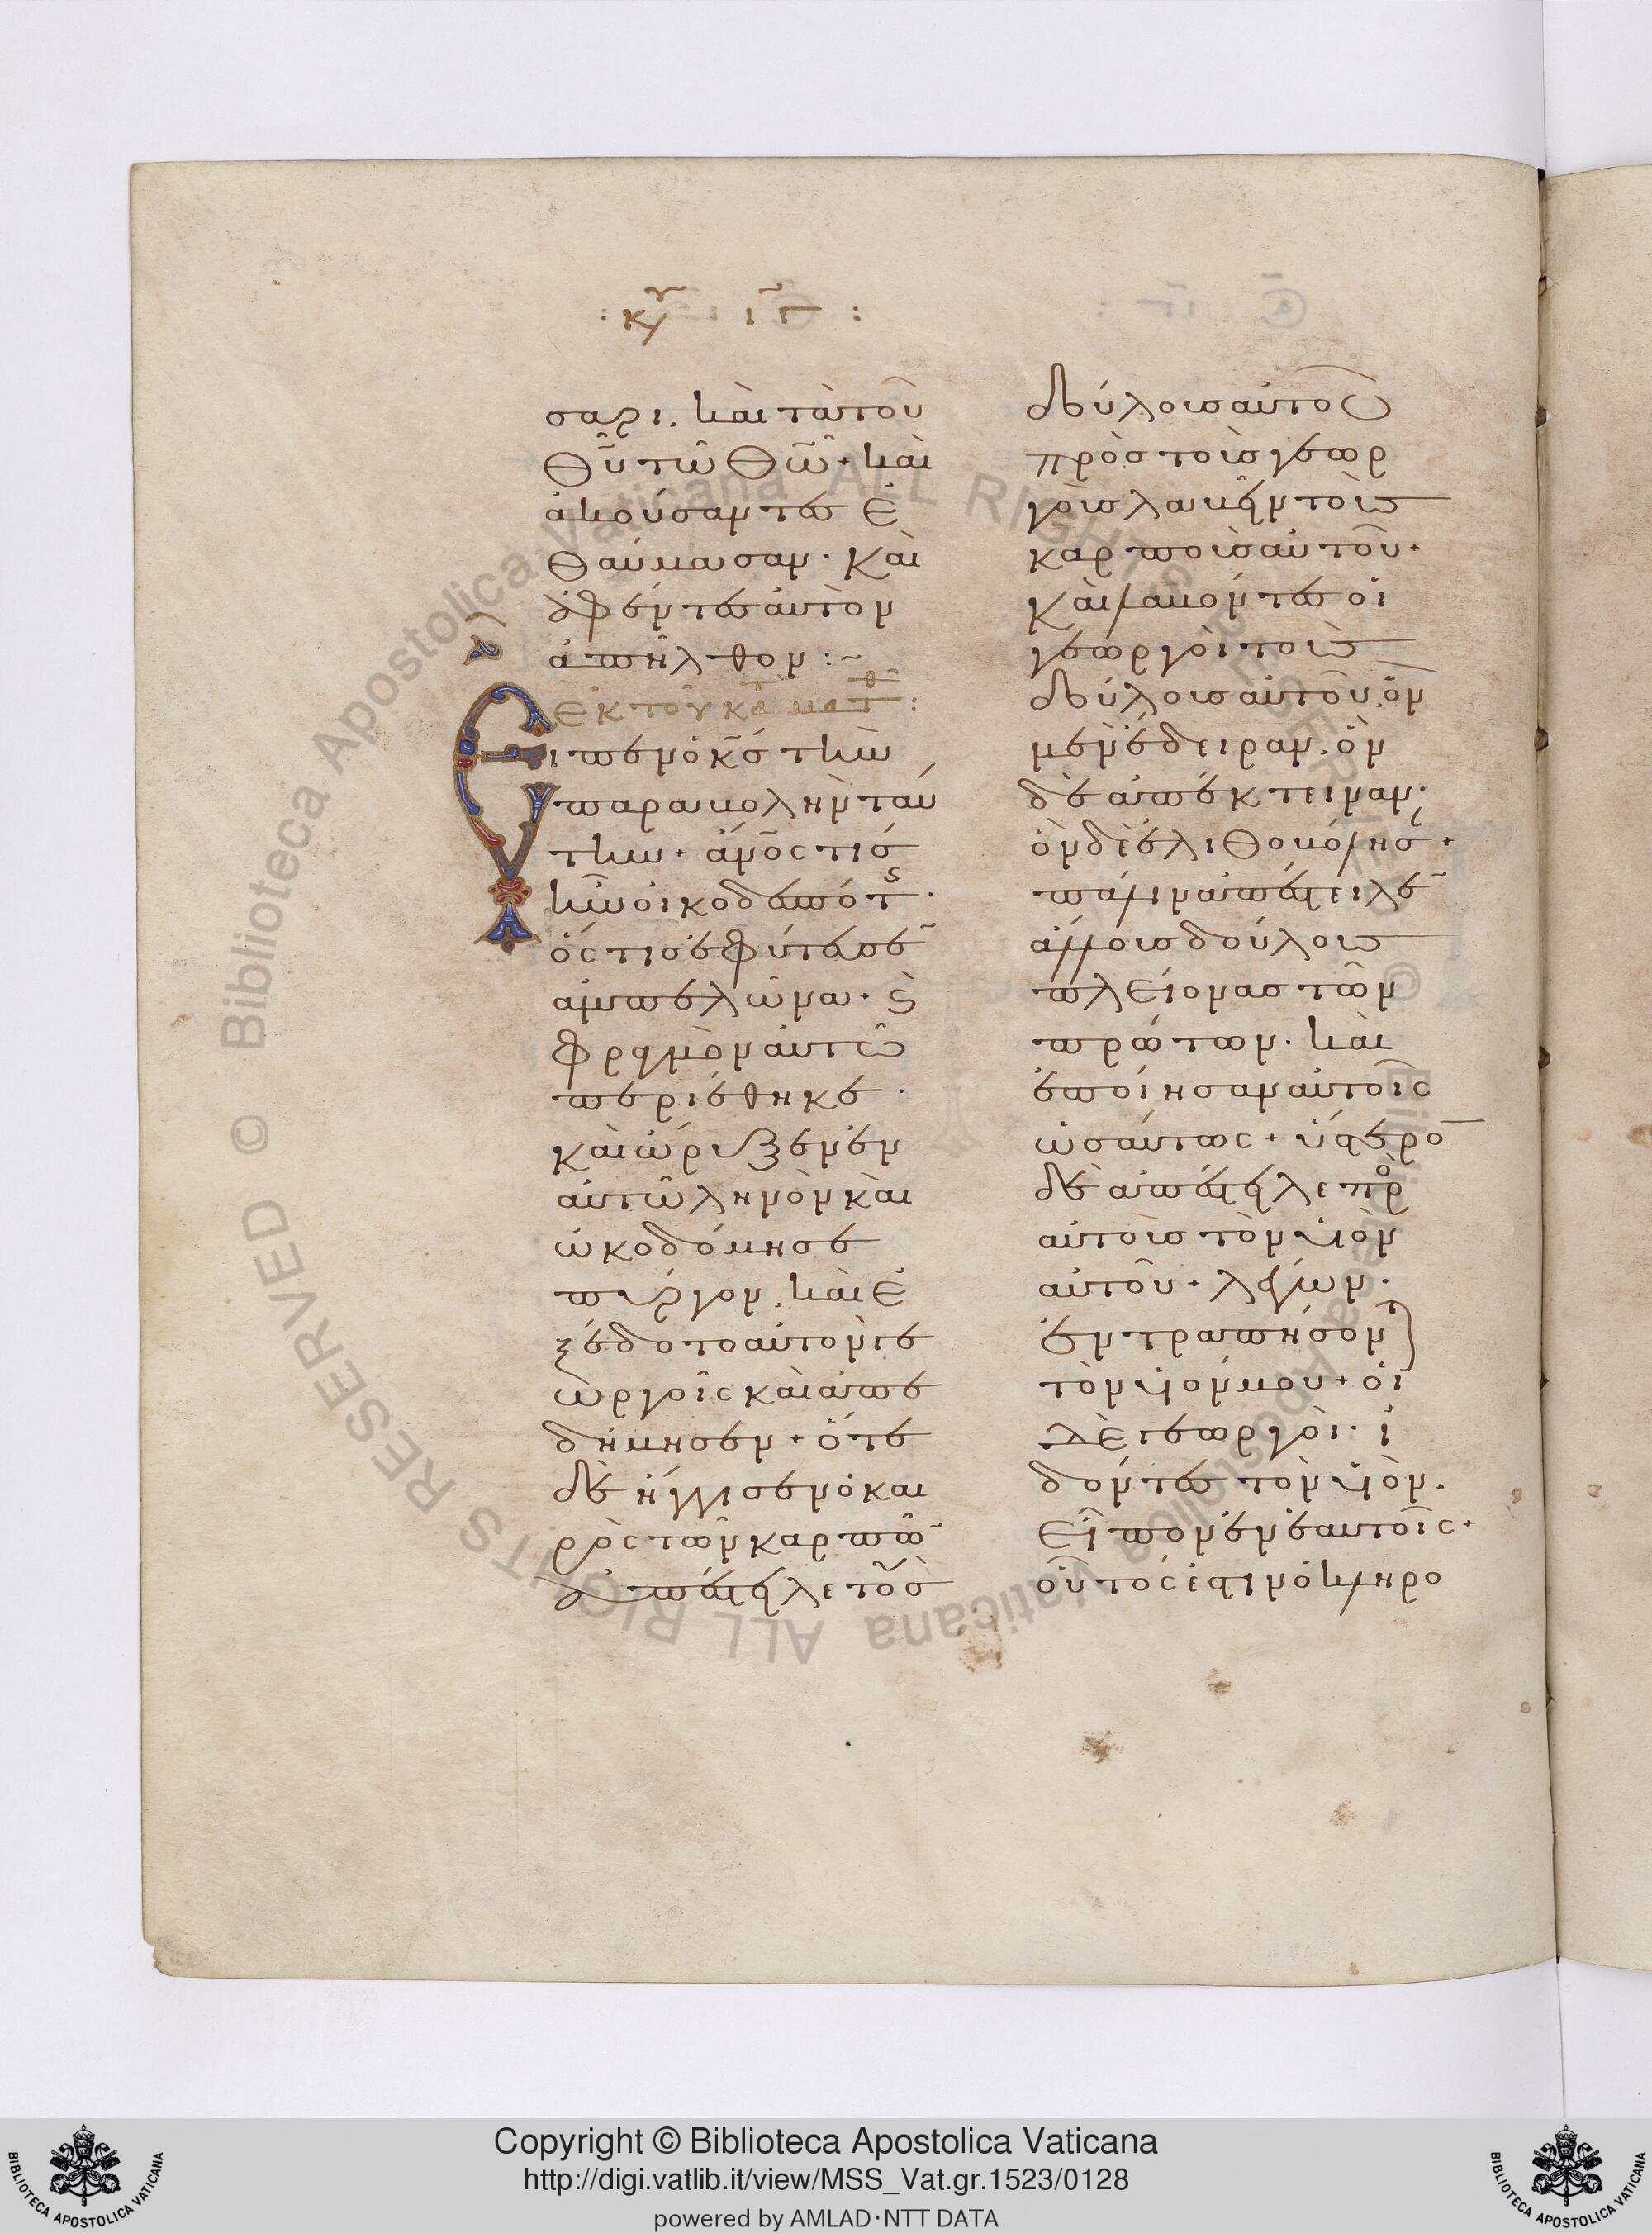 : κυ ιγ :
σαρι. καὶ τὰ τοῦ
Θῦ τῶ Θῶ + καὶ
ἀκούσαντες ἐ
θαύμασαν · καὶ
ἀφέντες αὐτὸν
ἀπῆλθον :~
ἐκ τοῦ κατὰ ματθ :
Εἶπεν ὁ κς τὴν
παραβολὴν ταύ
την + ἄνος τις
ἦν οἰκοδεσπότης ·
ὅστις ἐφύτευσεν
ἀμπελῶνα · καὶ
φραγμὸν αὐτῶ
περιέθηκε ·
καὶ ὤρυξεν ἐν
αὐτῶ ληνὸν καὶ
ὠκοδόμησε
πύργον. καὶ ἐ
ξέδοτο αὐτὸν γε
ωργοῖς καὶ ἀπε
δήμησεν + ὅτε
δὲ ἤγγισεν ὁ και
ρὸς τῶν καρπῶν
ἀπέστειλε τοὺς
δούλους αὐτοῦ
πρὸς τοὺς γεωρ
γοὺς λαβεῖν τοὺς
καρποὺς αὐτοῦ +
καὶ λαβόντες οἱ
γεωργοὶ τοὺς
δούλους αὐτοῦ. ὃν
μὲν ἔδειραν. ὃν
δὲ ἀπέκτειναν ·
ὃν δὲ ἐλιθοβόλησαν +
πάλιν ἀπέστειλεν
ἄλλους δούλους
πλείονας τῶν
πρώτων · καὶ
ἐποίησαν αὐτοῖς
ὡσαύτως + ὕστερον
δὲ ἀπέστειλε πρὸς
αὐτοὺς τὸν υἱὸν
αὐτοῦ + λέγων ·
ἐντραπήσονται
τὸν υἱόν μου + οἱ
δὲ γεωργοὶ · ἰ
δόντες τὸν υἱὸν ·
εἶπον ἐν ἑαυτοῖς +
οὗτός ἐστιν ὁ κληρο
Copyright © Biblioteca Apostolica Vaticana
http://digi.vatlib.it/view/MSS_Vat.gr.1523/0128
powered by AMLAD·NTT DATA